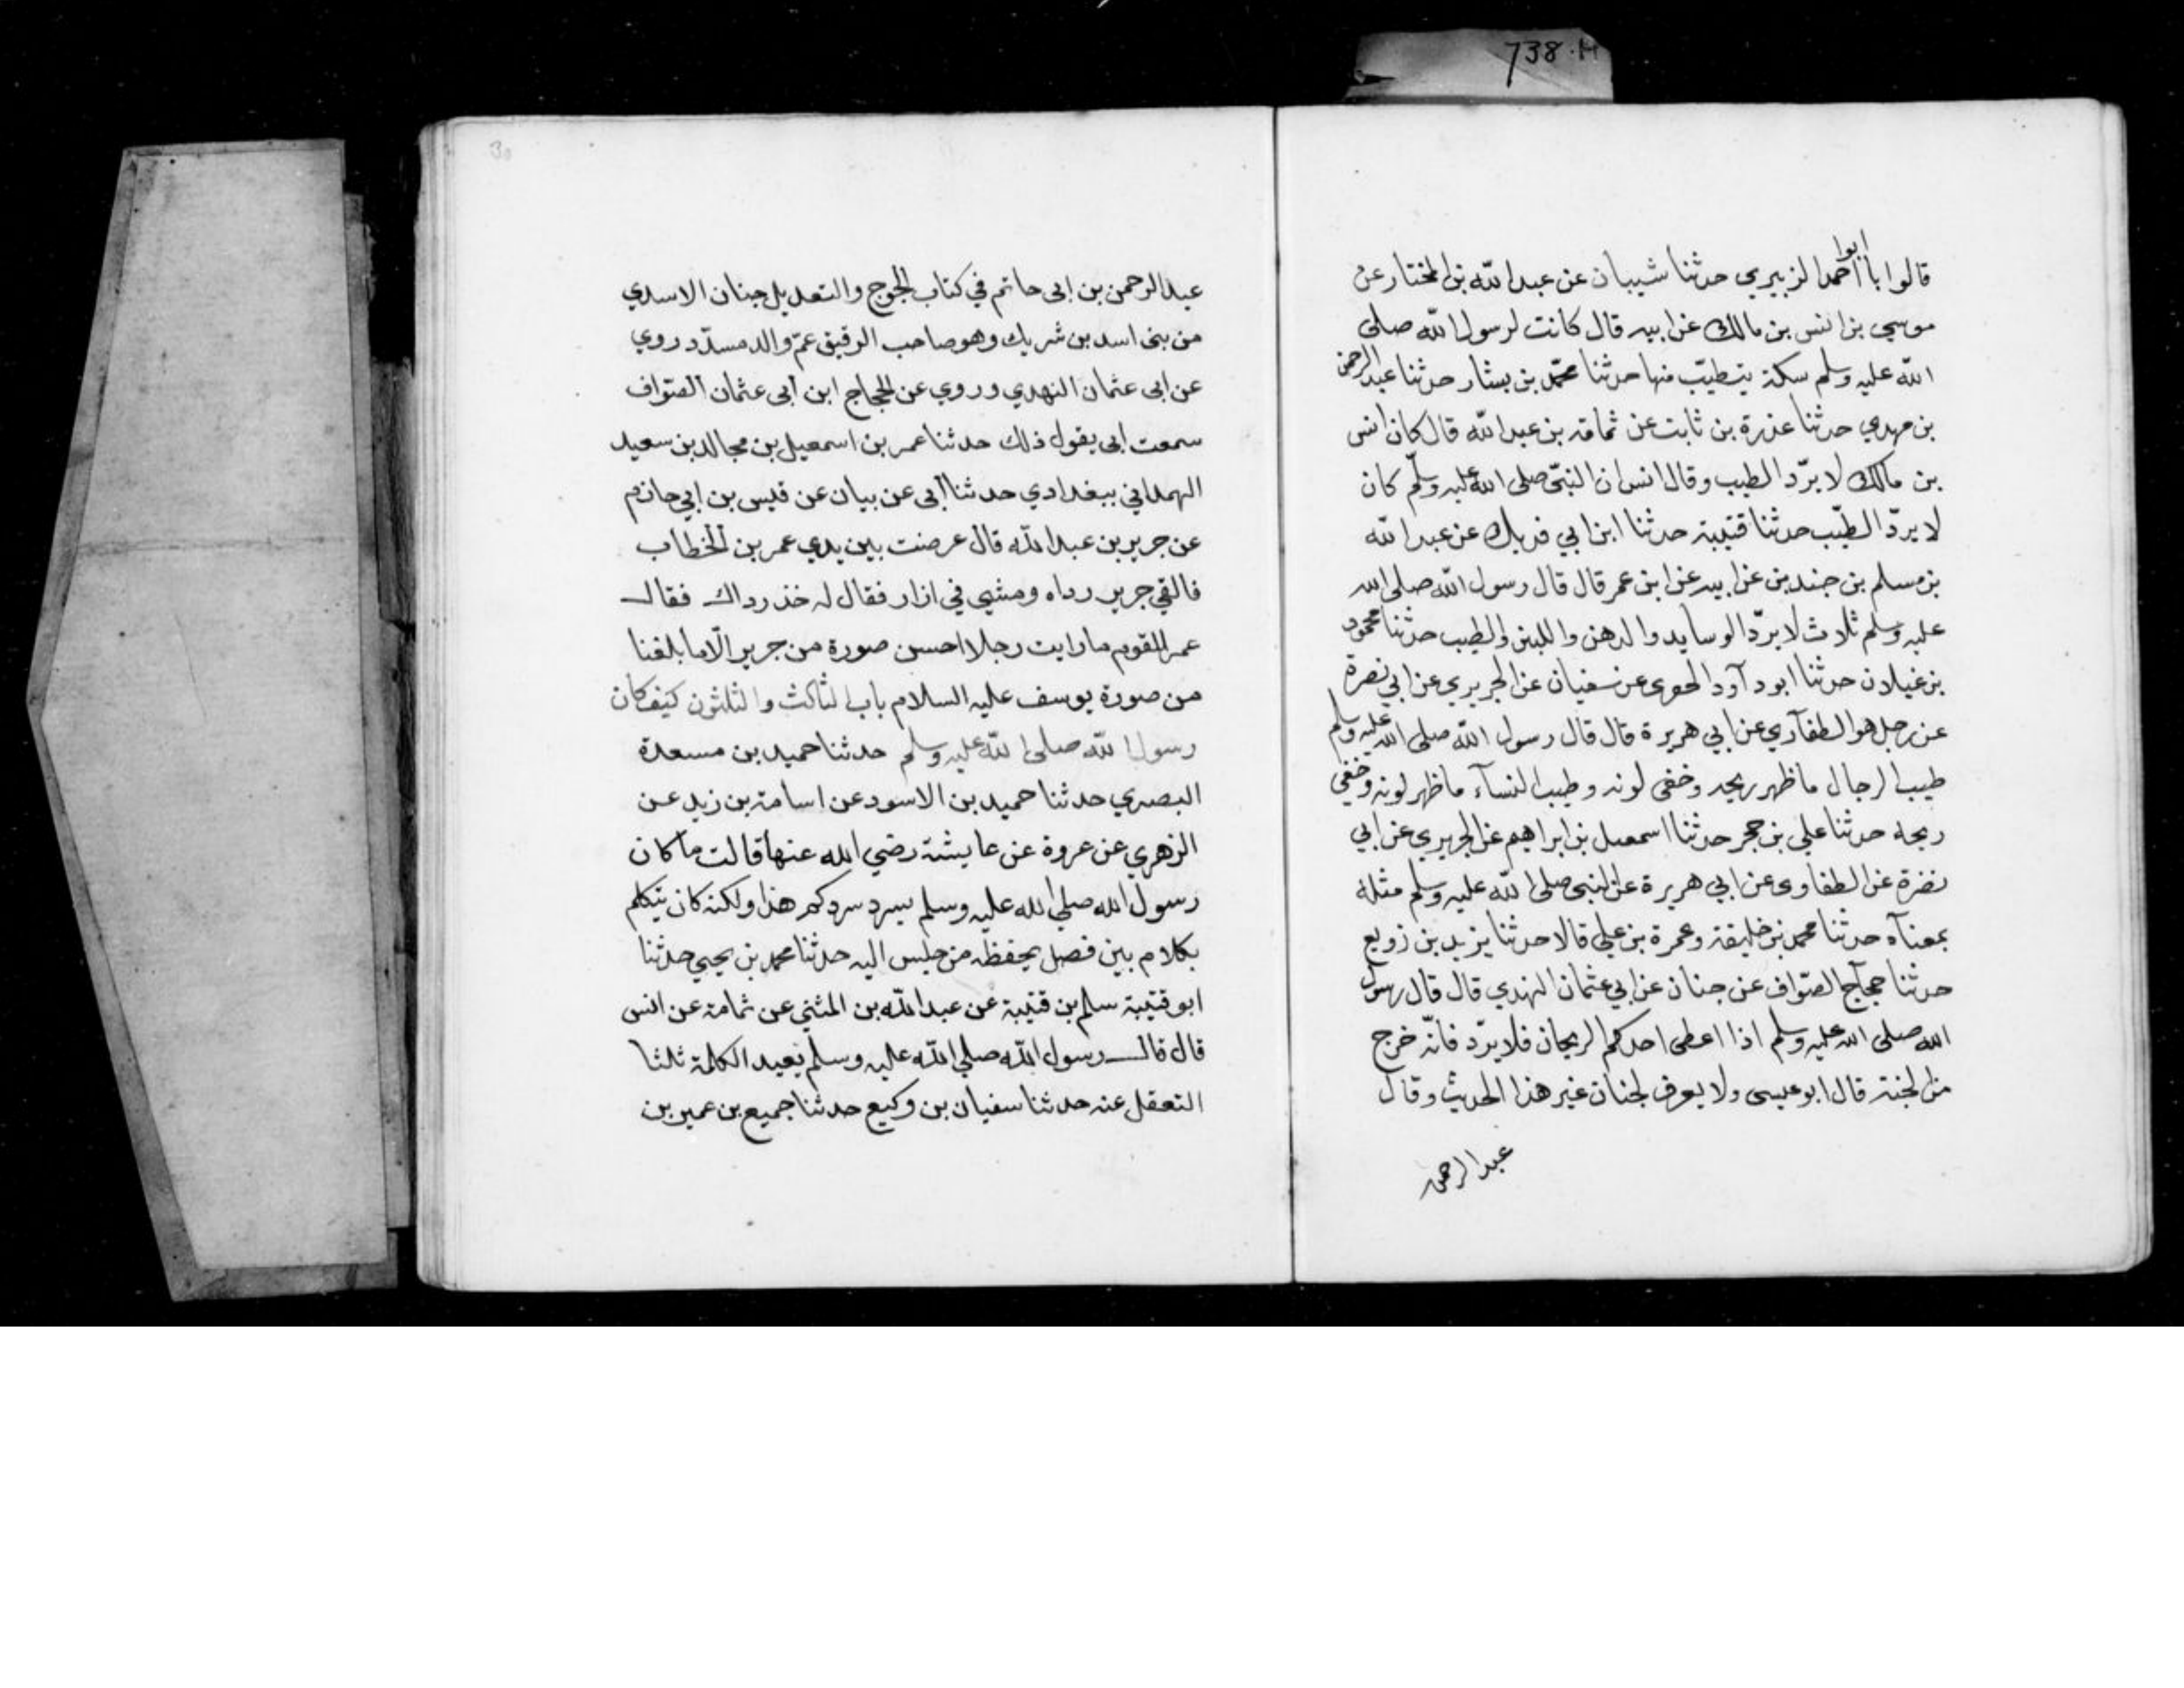 738.H
ابوا
قالوا باأحمد الزبيري حدثنا شيبان عن عبد الله بن المختار عن
موسي بن انس بن مالك عن ابيه قال كانت لرسول الله صلى
الله عليه وسلم سكة يتطيّب منها حدثنا محمّد بن بشار حدثنا عبد الرحمن
بن مهدي حدثنا عزرة بن ثابت عن ثمامة بن عبد الله قال كان انس
بن مالك لا يردّ الطيب وقال انس ان النبّي صلى الله عليه وسلّم كان
لا يردّ الطيّب حدثنا قتيبة حدثنا ابن ابي فديك عن عبد الله
بن مسلم بن جندب عن ابيه عن ابن عمر قال قال رسول الله صلى الله
عليه وسلم ثلاث لا يردّ الوسايد والدهن واللبن والطيب حدثنا محمود
بن غيلان حدثنا ابو دآود الحفري عن سفيان عن الجريري عن ابي نصرة
عن رجل هو الطفآري عن ابي هريرة قال قال رسول الله صلى الله عليه وسلم
طيب الرجال ما ظهر ريحه وخفى لونه وطيب النسآء ما ظهر لونه وخفي
ريحه حدثنا علي بن حجر حدثنا اسمعيل بن ابراهيم عن الجريري عن ابي
نضرة عن الطفاوي عن ابي هريرة عن النبي صلى الله عليه وسلم مثله
بمعنآه حدثنا محمد بن خليفة وعمرة بن علي قالا حدثنا يزيد بن زويع
حدثنا حجآج الصوّاف عن حنان عن ابي عثمان النهدي قال قال رسول
الله صلى الله عليه وسلم اذا اعطى احدكم الريحان فلا يردّ فانّه خرج
من الجنة قال ابو عيسى ولا يعرف لحنان غير هذا الحديث وقال
عبد الرحمن
30
عبد الرحمن بن ابي حاتم في كتاب الجرح والتعديل حنان الاسدي
من بني اسد بن شريك وهو صاحب الرقيق عمّ والد مسدّد روي
عن ابي عثمان النهدي وروي عن الحجاج ابن أبى عثمان الصوّاف
سمعت ابي يقول ذلك حدثنا عمر بن اسمعيل بن مجالد بن سعيد
الهمداني ببغدادي حدثنا أبى عن بيان عن قيس بن ابي حازم
عن جرير بن عبد الله قال عرضت بين يدي عمر بن الخطاب
فالقي جرير رداه ومشي في ازار فقال له خذ رداك فقال
عمر للقوم ما رايت رجلا احسن صورة من جرير الّا ما بلغنا
من صورة يوسف عليه السلام باب الثالث والثلثون كيف كان
رسول الله صلى الله عليه وسلم حدثنا حميد بن مسعدة
البصري حدثنا حميد بن الاسود عن اسامة بن زيد عن
الزهري عن عروة عن عايشة رضي الله عنها قالت ما كان
رسول الله صلي الله عليه وسلم يسرد سردكم هذا ولكنه كان يتكلم
بكلام بين فصل يحفظه من جلس اليه حدثنا محمد بن يحيي حدثنا
ابو قتيبة سلم بن قتيبة عن عبد الله بن المثني عن ثمامة عن انس
قال قال رسول الله صلي الله عليه وسلم يعيد الكلمة ثلثا
التعقل عنه حدثنا سفيان بن وكيع حدثنا جميع بن عمير بن